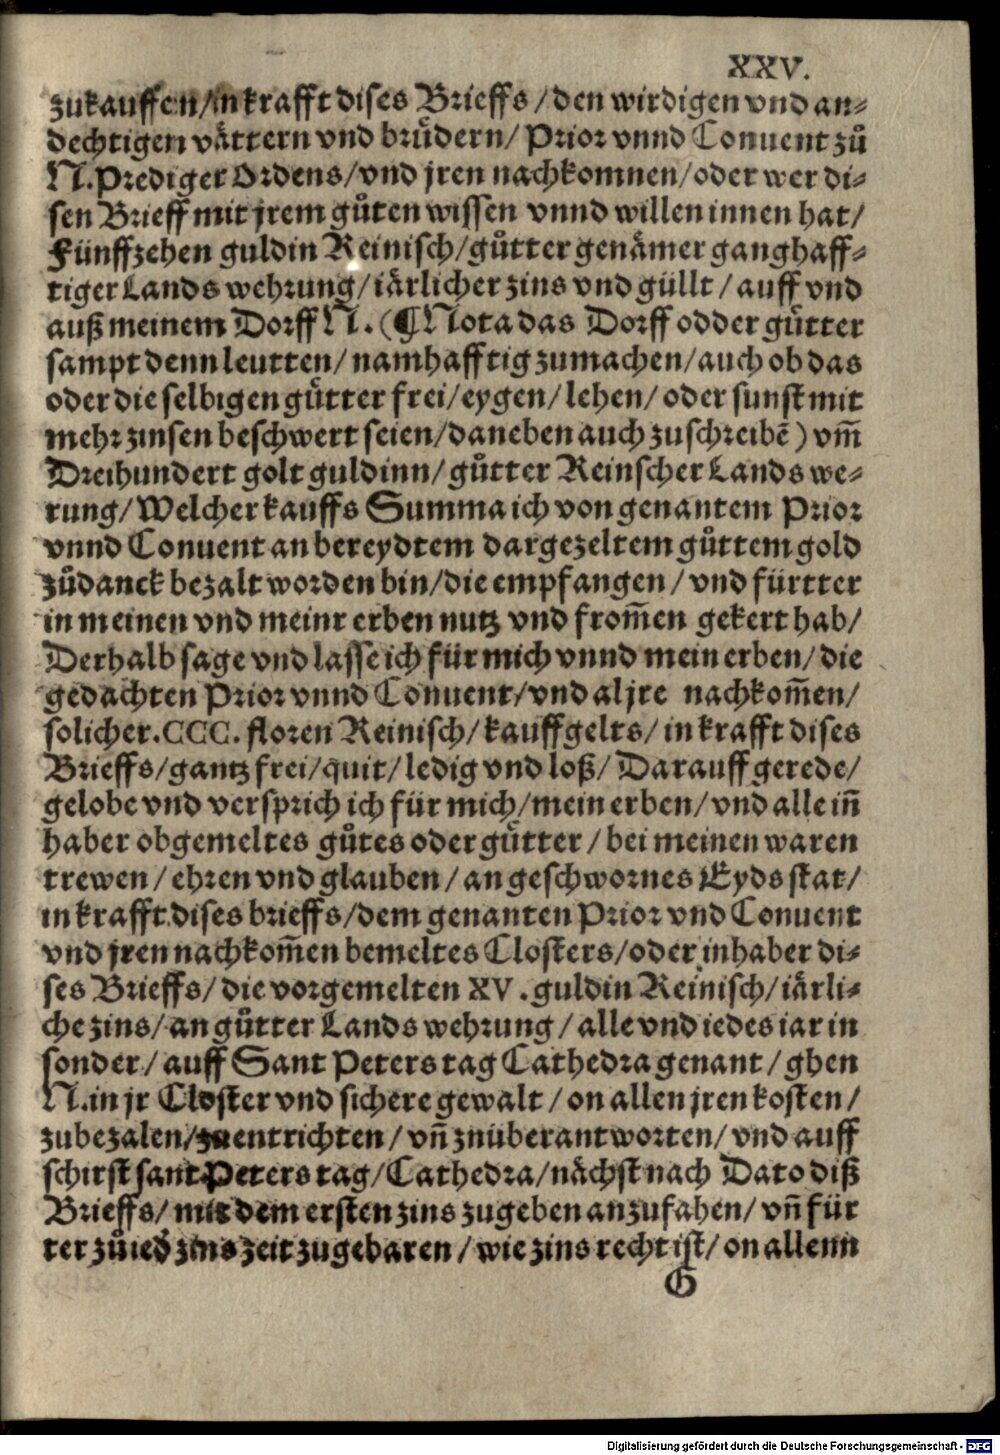 XXV.
zukauffen/in krafft dises Brieffs/den wirdigen vnd an⸗
dechtigen vättern vnd brüdern/Prior vnnd Conuent zů
N. Prediger Ordens/vnd jren nachkomnen/oder wer di⸗
sen Brieff mit jrem gůten wissen vnnd willen innen hat/
Fünffzehen guldin Reinisch/gůtter genämer ganghaff⸗
tiger Lands wehrung/iärlicher zins vnd güllt/auff vnd
auß meinem Dorff N. (¶Nota das Dorff odder gütter
sampt denn leutten/namhafftig zumachen/auch ob das
oder die selbigen gütter frei/eygen/lehen/oder sunst mit
mehr zinsen beschwert seien/daneben auch zuschreibē) vm̄
Dreihundert golt guldinn/gůtter Reinscher Lands we⸗
rung/Welcher kauffs Summa ich von genantem Prior
vnnd Conuent an bereydtem dargezeltem gůttem gold
zůdanck bezalt worden bin/die empfangen/vnd fürtter
in meinen vnd meinr erben nutz vnd from̄en gekert hab/
Derhalb sage vnd lasse ich für mich vnnd mein erben/die
gedachten Prior vnnd Conuent/vnd al jre nachkom̄en/
solicher .CCC. floren Reinisch/kauffgelts/in krafft dises
Brieffs/gantz frei/quit/ledig vnd loß/Darauff gerede/
gelobe vnd versprich ich für mich/mein erben/vnd alle in̄
haber obgemeltes gůtes oder gütter/bei meinen waren
trewen/ehren vnd glauben/an geschwornes Eyds stat/
in krafft dises brieffs/dem genanten Prior vnd Conuent
vnd jren nachkom̄en bemeltes Closters/oder inhaber di⸗
ses Brieffs/die vorgemelten XV. guldin Reinisch/iärli⸗
che zins/an gůtter Lands wehrung/alle vnd iedes iar in
sonder/auff Sant Peters tag Cathedra genant/ghen
N. in jr Closter vnd sichere gewalt/on allen jren kosten/
zubezalen/zu entrichten/vn̄ znüberantworten/vnd auff
schirst sant Peters tag/Cathedra/nächst nach Dato diß
Brieffs/mit dem ersten zins zugeben anzufahen/vn̄ für
ter zů ied zins zeit zugebaren/wie zins recht ist/on allenn
G
Digitalisierung gefördert durch die Deutsche Forschungsgemeinschaft - DFG